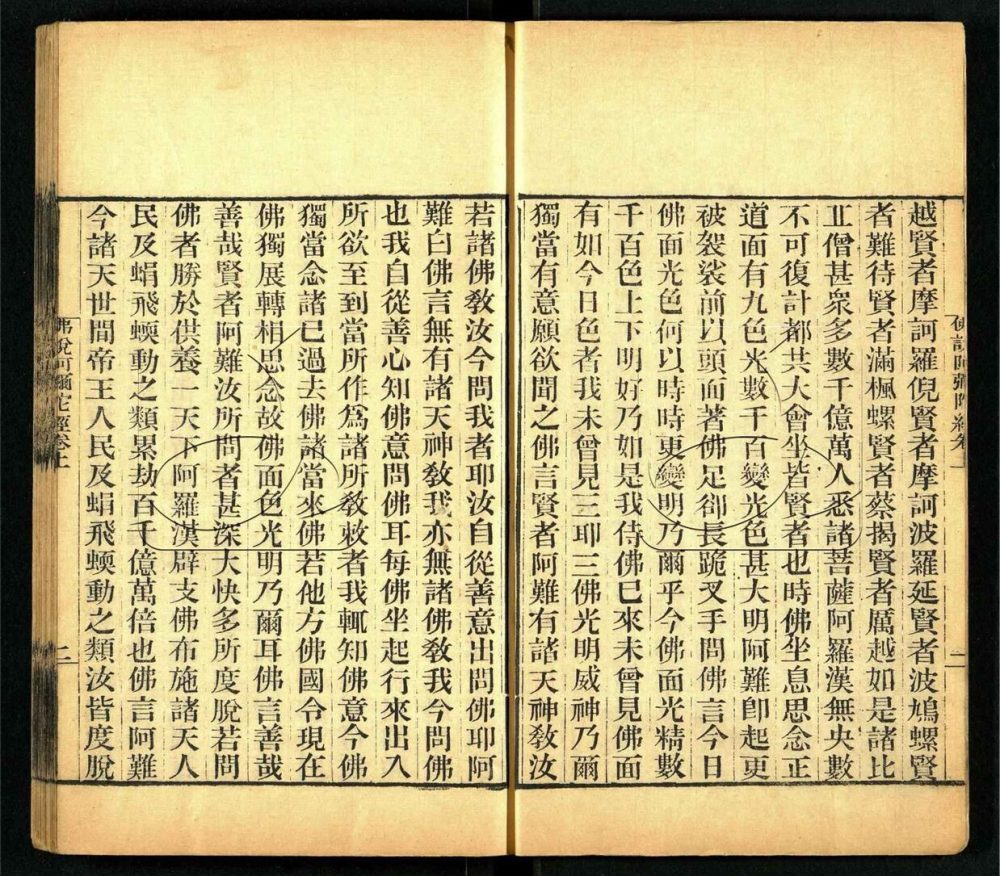 越賢者摩訶羅倪賢者摩訶波羅延賢者波鳩螺賢
者難待賢者滿楓螺賢者蔡揭賢者厲越如是諸比
丘僧甚衆多數千億萬人悉諸菩薩阿羅漢無央數
不可復計都共大會坐皆賢者也時佛坐息思念正
道面有九色光數千百變光色甚大明阿難卽起更
被袈裟前以頭面著佛足卻長跪叉手問佛言今日
佛面光色何以時時更變明乃爾乎今佛面光精數
千百色上下明好乃如是我侍佛已來未曾見佛面
有如今日色者我未曾見三耶三佛光明威神乃爾
獨當有意願欲聞之佛言賢者阿難有諸天神教汝
若諸佛教汝今問我者耶汝自從善意出問佛耶阿
難白佛言無有諸天神教我亦無諸佛教我今問佛
也我自從善心知佛意問佛耳每佛坐起行來出入
所欲至到當所作爲諸所教敕者我輒知佛意今佛
獨當念諸已過去佛諸當來佛若他方佛國今現在
佛獨展轉相思念故佛面色光明乃爾耳佛言善哉
善哉賢者阿難汝所問者甚深大快多所度脫若問
佛者勝於供養一天下阿羅漢辟支佛布施諸天人
民及蜎飛蝡動之類累劫百千億萬倍也佛言阿難
今諸天世間帝王人民及蜎飛蝡動之類汝皆度脫
佛說阿彌陀經卷上
二